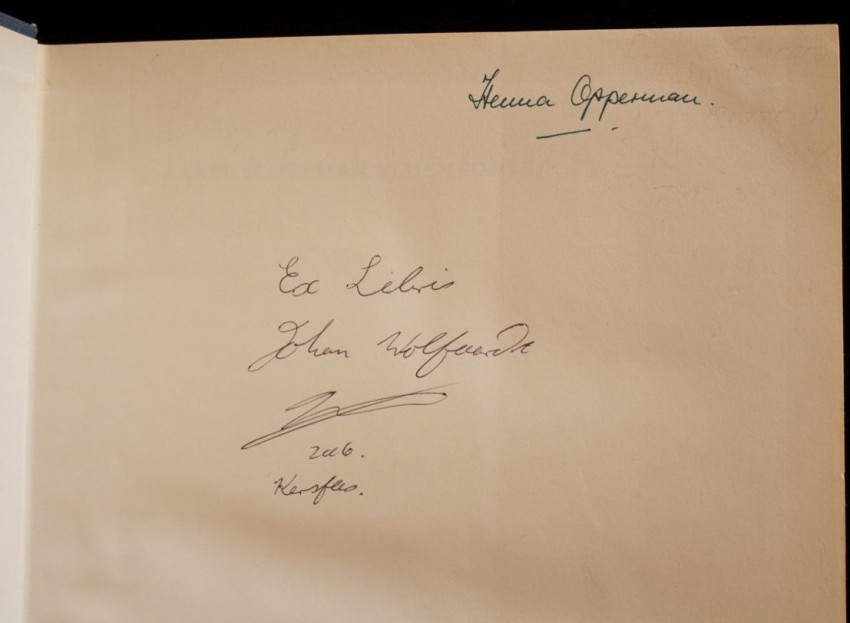 Henna Opperman.
Ex Libris
Johan Wolfaardt
2006.
Kersfees.